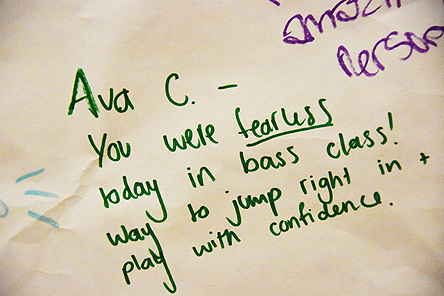 amazin
person
Ava C. –
You were fearless
today in bass class!
way to jump right in +
play with confidence.